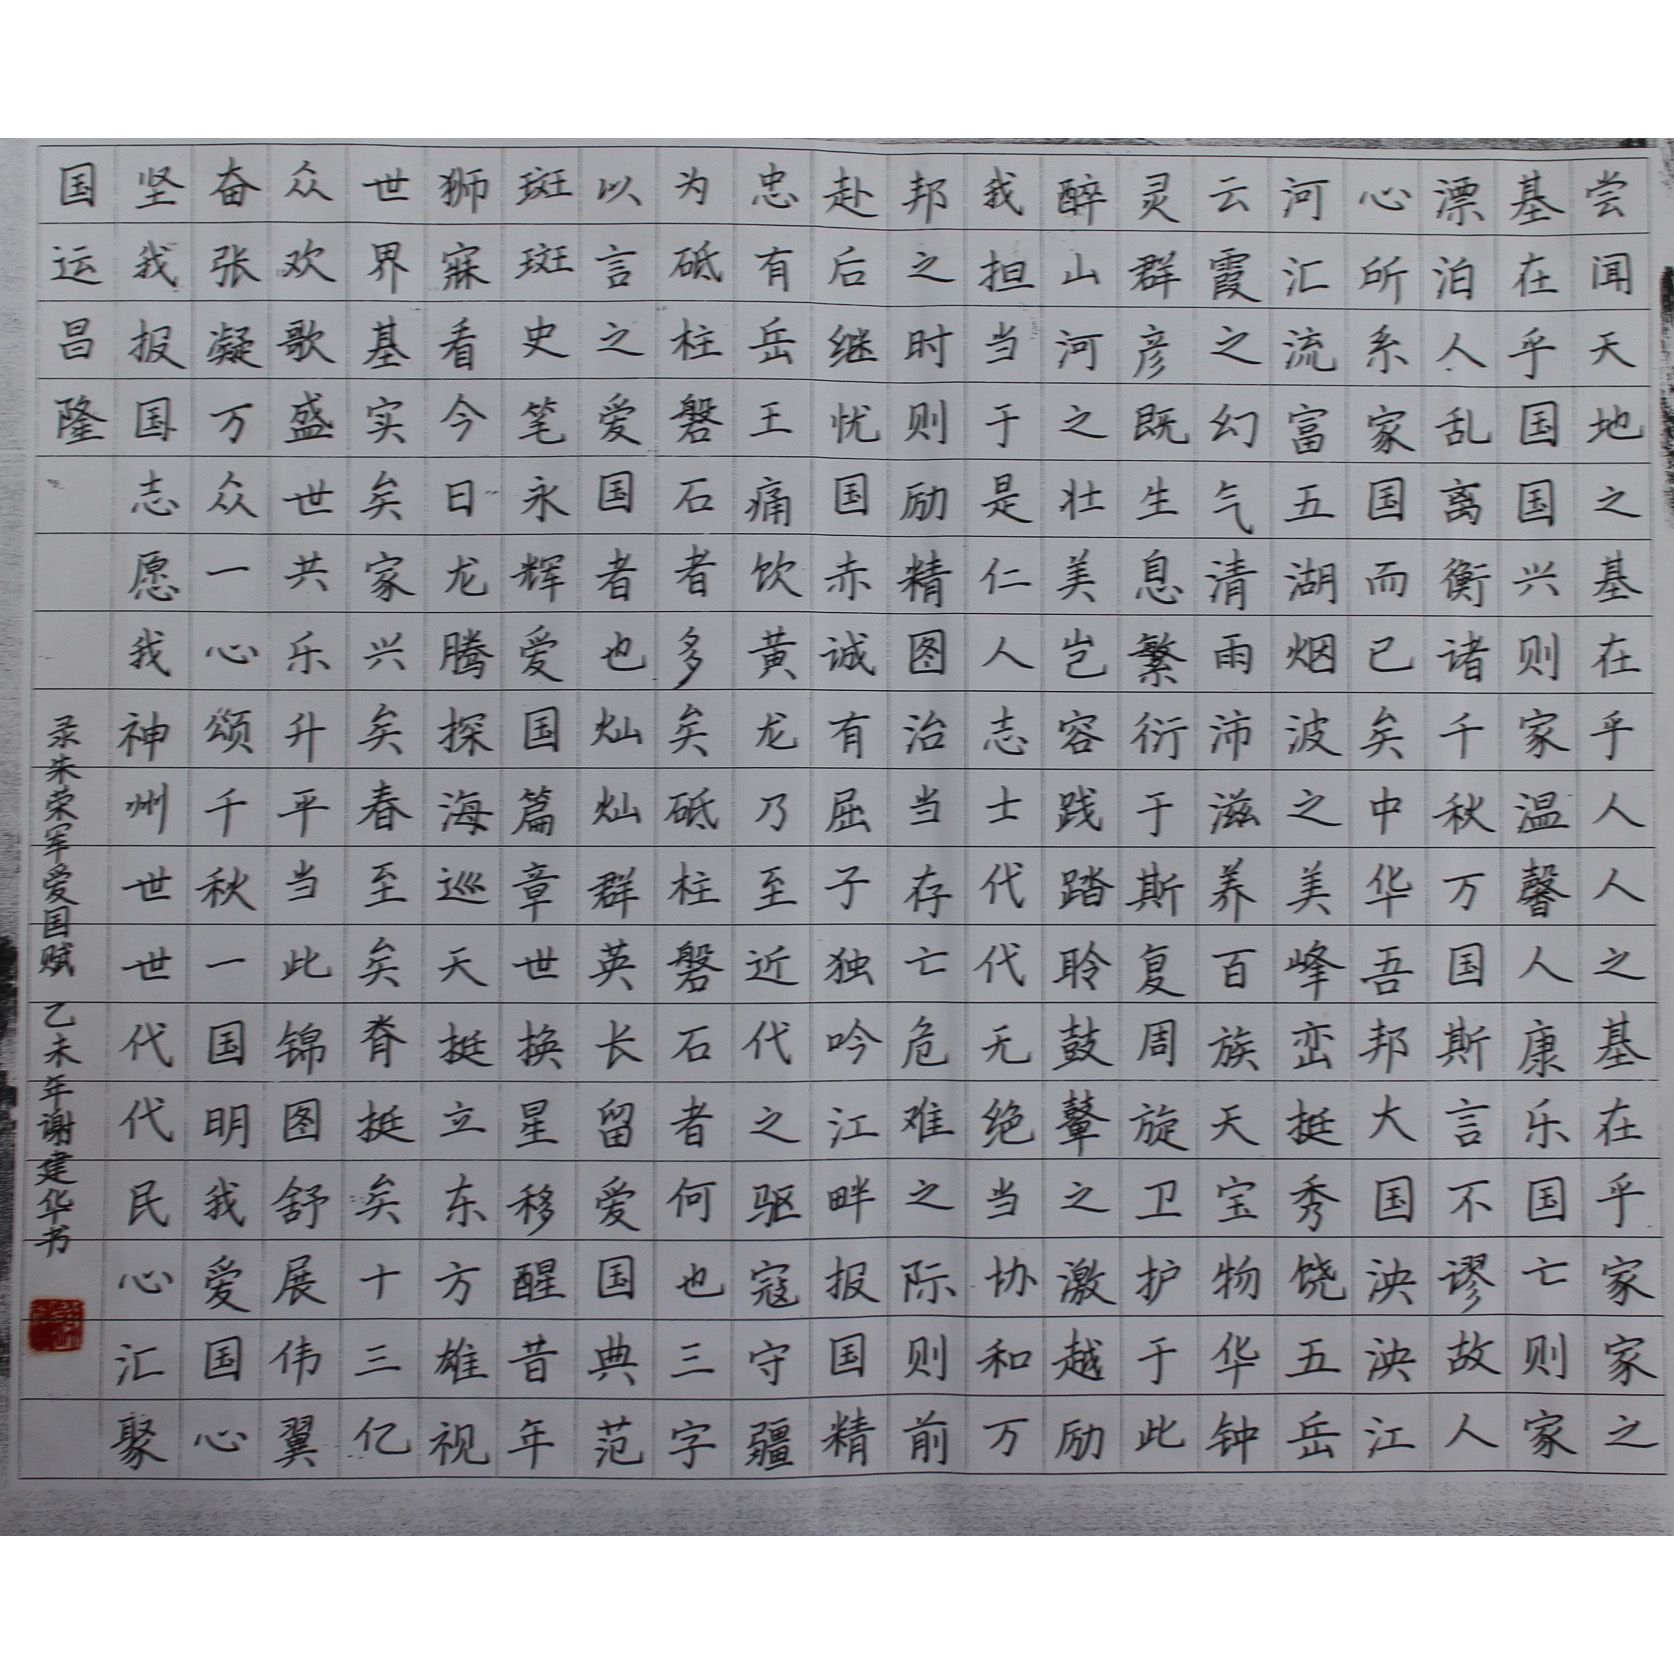 尝闻天地之基在乎人人之基在乎家家之
基在乎国国兴则家温馨人康乐国亡则家
漂泊人乱离衡诸千秋万国斯言不谬故人
心所系家国而已矣中华吾邦大国泱泱江
河汇流富五湖烟波之美峰峦挺秀饶五岳
云霞之幻气清雨沛滋养百族天宝物华钟
灵群彦既生息繁衍于斯复周旋卫护于此
醉山河之壮美岂容践踏聆鼓鼙之激越励
我担当于是仁人志士代代无绝当协和万
邦之时则励精图治当存亡危难之际则前
赴后继忧国赤诚有屈子独吟江畔报国精
忠有岳王痛饮黄龙乃至近代之驱寇守疆
为砥柱磐石者多矣砥柱磐石者何也三字
以言之爱国者也灿灿群英长留爱国典范
斑斑史笔永辉爱国篇章世换星移醒昔年
狮寐看今日龙腾探海巡天挺立东方雄视
世界基实矣家兴矣春至矣脊挺矣十三亿
众欢歌盛世共乐升平当此锦图舒展伟翼
奋张凝万众一心颂千秋一国明我爱国心
坚我报国志愿我神州世世代代民心汇聚
国运昌隆
录朱荣军爱国赋 乙未年谢建华书